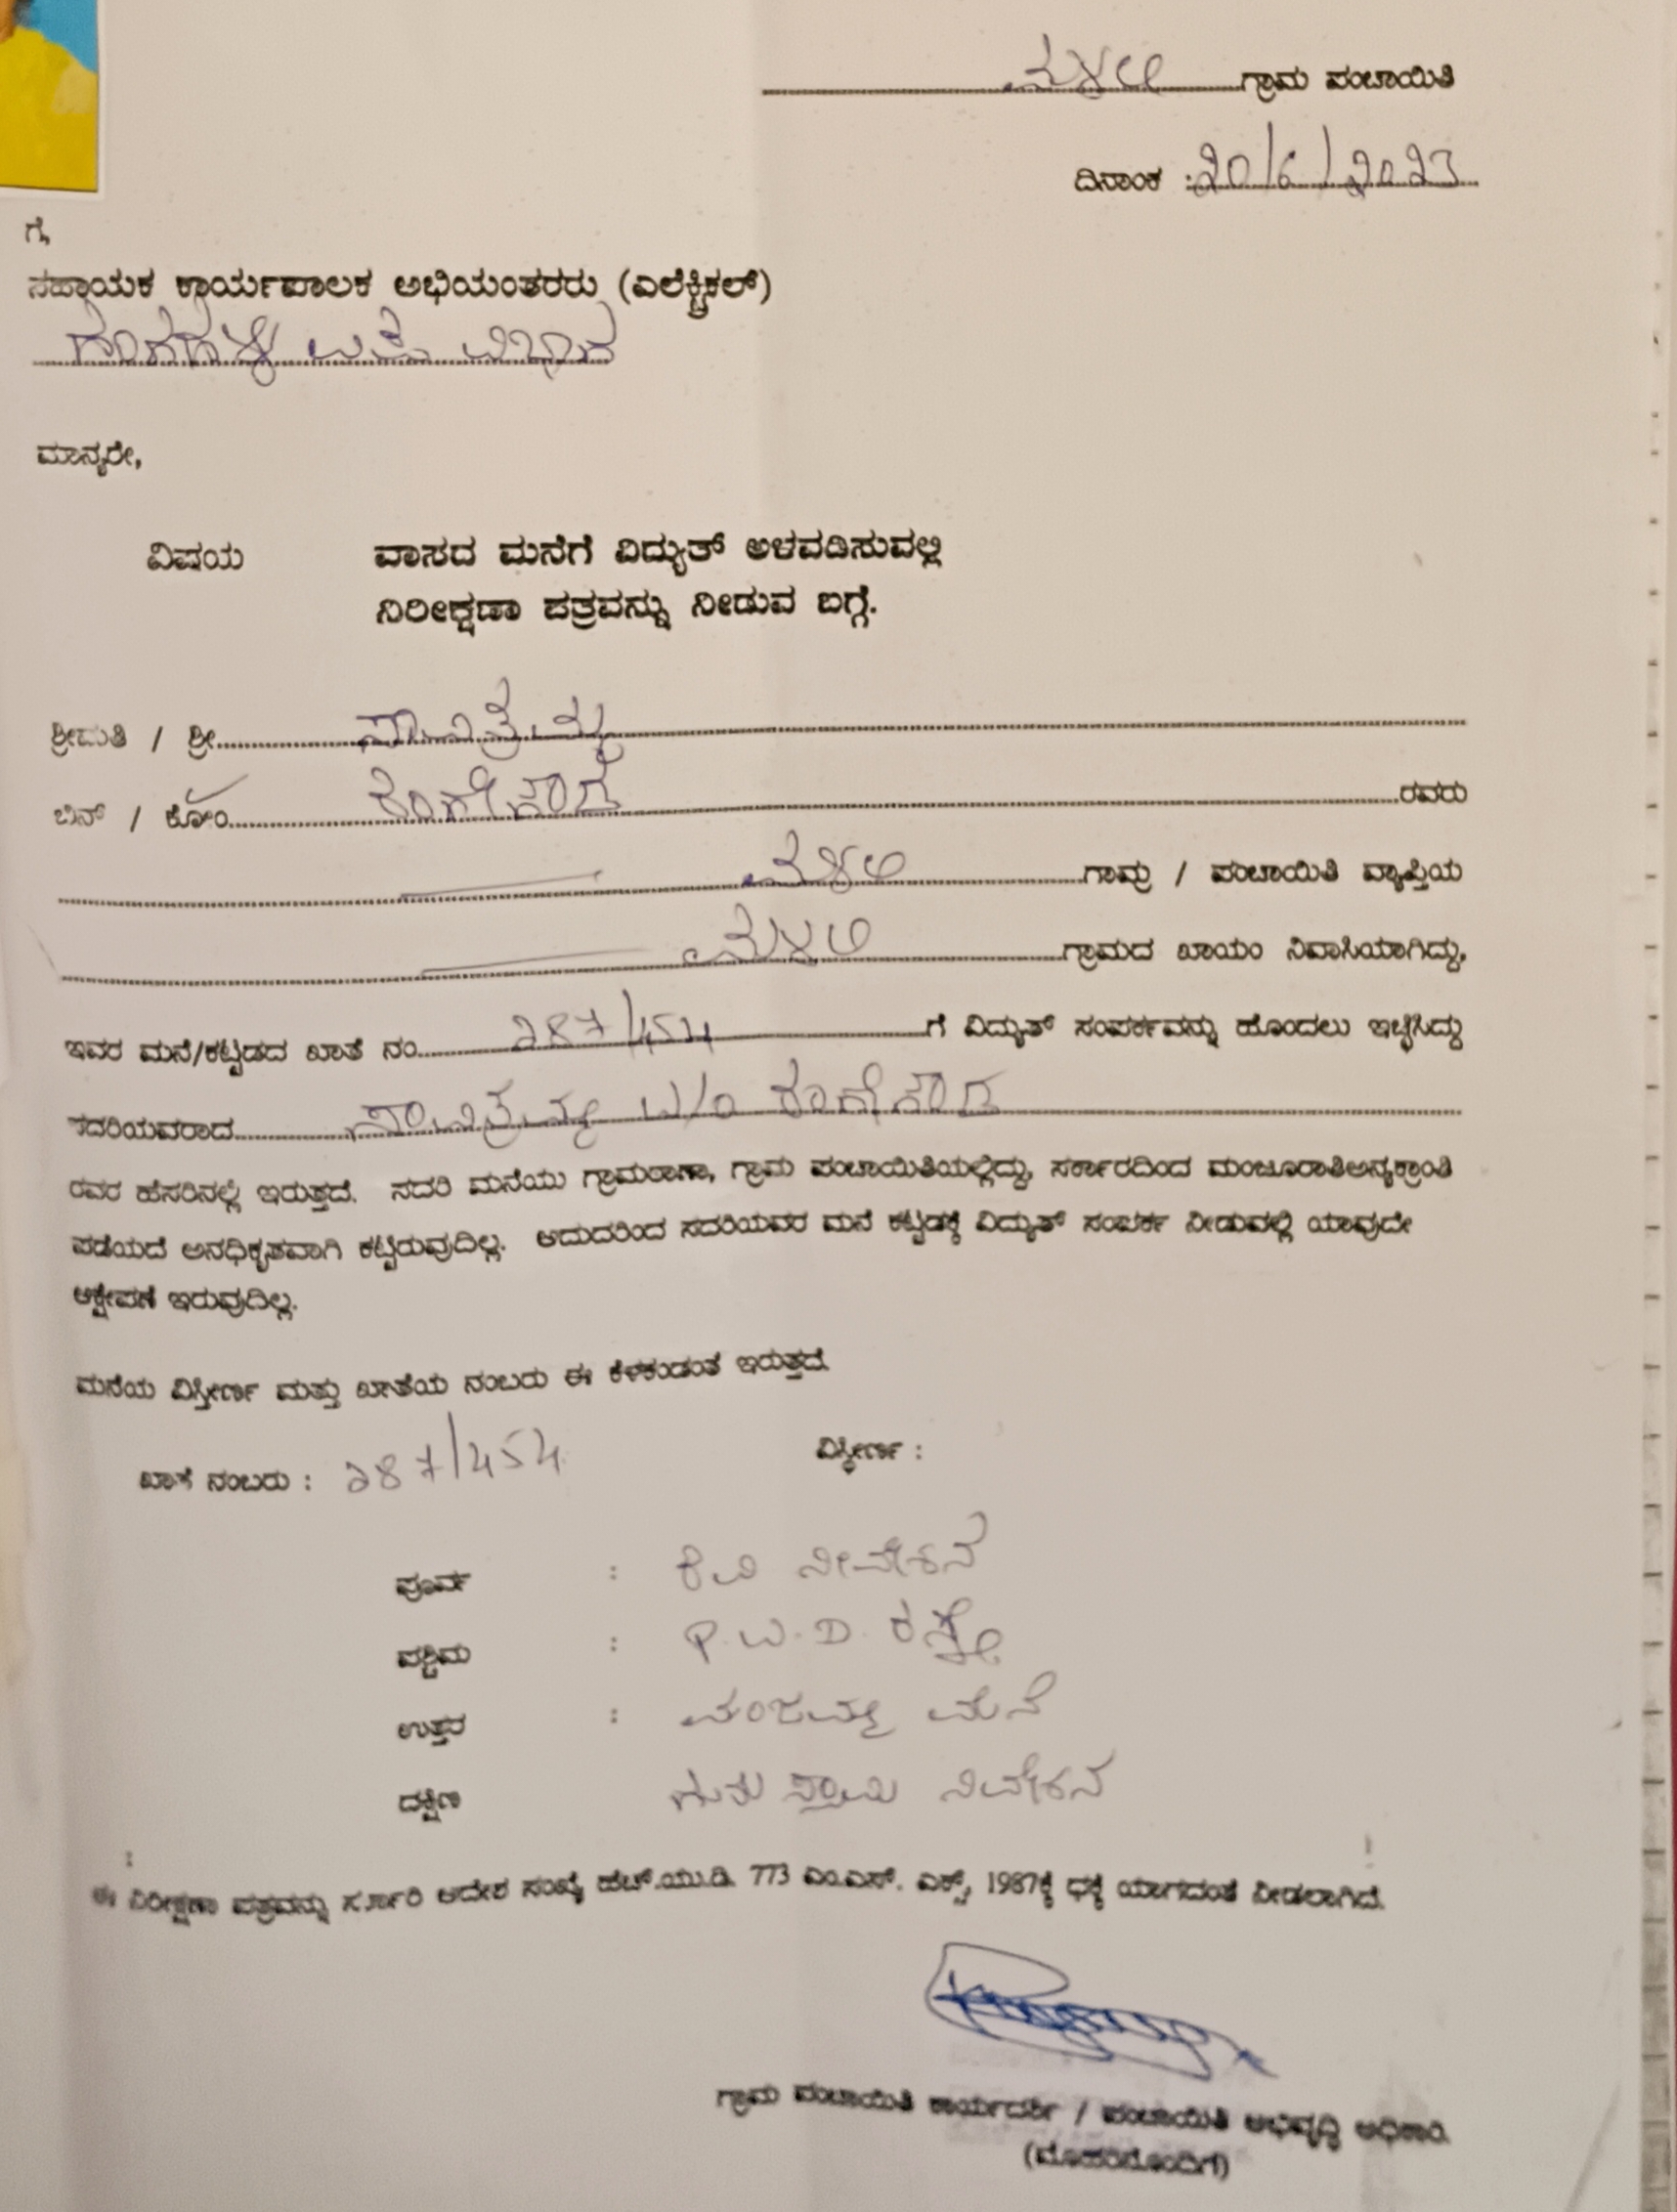 ಮಳಲಿ ಗ್ರಾಮ ಪಂಚಾಯಿತಿ
ದಿನಾಂಕ : 20/6/2023
ಗೆ,
ಸಹಾಯಕ ಕಾರ್ಯಪಾಲಕ ಅಭಿಯಂತರರು (ಎಲೆಕ್ಟ್ರಿಕಲ್)
ಉಪ ವಿಭಾಗ
ಮಾನ್ಯರೇ,
ವಿಷಯ ವಾಸದ ಮನೆಗೆ ವಿದ್ಯುತ್ ಅಳವಡಿಸುವಲ್ಲಿ
ನಿರೀಕ್ಷಣಾ ಪತ್ರವನ್ನು ನೀಡುವ ಬಗ್ಗೆ.
ಶ್ರೀಮತಿ / ಶ್ರೀ ಸಾವಿತ್ರಮ್ಮ
ಬಿನ್ / ಕೋಂ ರಂಗೇಗೌಡ ರವರು
ಮಳಲಿ ಗ್ರಾಮ / ಪಂಚಾಯಿತಿ ವ್ಯಾಪ್ತಿಯ
ಮಳಲಿ ಗ್ರಾಮದ ಖಾಯಂ ನಿವಾಸಿಯಾಗಿದ್ದು,
ಇವರ ಮನೆ/ಕಟ್ಟಡದ ಖಾತೆ ನಂ. 287/454 ಗೆ ವಿದ್ಯುತ್ ಸಂಪರ್ಕವನ್ನು ಹೊಂದಲು ಇಚ್ಛಿಸಿದ್ದು
ಸದರಿಯವರಾದ ಸಾವಿತ್ರಮ್ಮ W/o ರಂಗೇಗೌಡ
ರವರ ಹೆಸರಿನಲ್ಲಿ ಇರುತ್ತದೆ. ಸದರಿ ಮನೆಯು ಗ್ರಾಮಠಾಣಾ, ಗ್ರಾಮ ಪಂಚಾಯಿತಿಯಲ್ಲಿದ್ದು, ಸರ್ಕಾರದಿಂದ ಮಂಜೂರಾತಿಅನ್ಯಕ್ರಾಂತಿ
ಪಡೆಯದೆ ಅನಧಿಕೃತವಾಗಿ ಕಟ್ಟಿರುವುದಿಲ್ಲ. ಆದುದರಿಂದ ಸದರಿಯವರ ಮನೆ ಕಟ್ಟಡಕ್ಕೆ ವಿದ್ಯುತ್ ಸಂಪರ್ಕ ನೀಡುವಲ್ಲಿ ಯಾವುದೇ
ಆಕ್ಷೇಪಣೆ ಇರುವುದಿಲ್ಲ.
ಮನೆಯ ವಿಸ್ತೀರ್ಣ ಮತ್ತು ಖಾತೆಯ ನಂಬರು ಈ ಕೆಳಕಂಡಂತೆ ಇರುತ್ತದೆ.
ಖಾತೆ ನಂಬರು : 287/454 ವಿಸ್ತೀರ್ಣ :
ಪೂರ್ವ : ರವಿ ನಿವೇಶನ
ಪಶ್ಚಿಮ : P.W.D. ರಸ್ತೆ
ಉತ್ತರ : ಮಂಜಮ್ಮ ಮನೆ
ದಕ್ಷಿಣ ಸ್ವಾಮಿ ನಿವೇಶನ
ಈ ನಿರೀಕ್ಷಣಾ ಪತ್ರವನ್ನು ಸರ್ಕಾರಿ ಆದೇಶ ಸಂಖ್ಯೆ ಹೆಚ್.ಯು.ಡಿ. 773 ಎಂ.ಎಸ್. ಎಕ್ಸ್, 1987ಕ್ಕೆ ಧಕ್ಕೆ ಯಾಗದಂತೆ ನೀಡಲಾಗಿದೆ.
ಗ್ರಾಮ ಪಂಚಾಯಿತಿ ಕಾರ್ಯದರ್ಶಿ / ಪಂಚಾಯಿತಿ ಅಭಿವೃದ್ಧಿ ಅಧಿಕಾರಿ
(ಮೊಹರಿನೊಂದಿಗೆ)